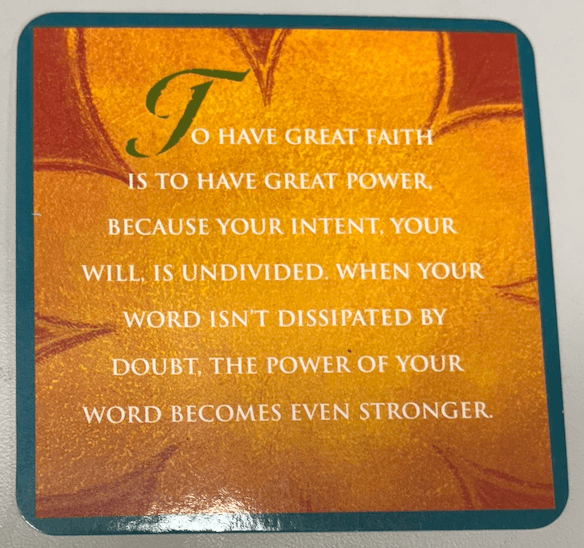 TO HAVE GREAT FAITH
IS TO HAVE GREAT POWER,
BECAUSE YOUR INTENT, YOUR
WILL, IS UNDIVIDED. WHEN YOUR
WORD ISN'T DISSIPATED BY
DOUBT, THE POWER OF YOUR
WORD BECOMES EVEN STRONGER.